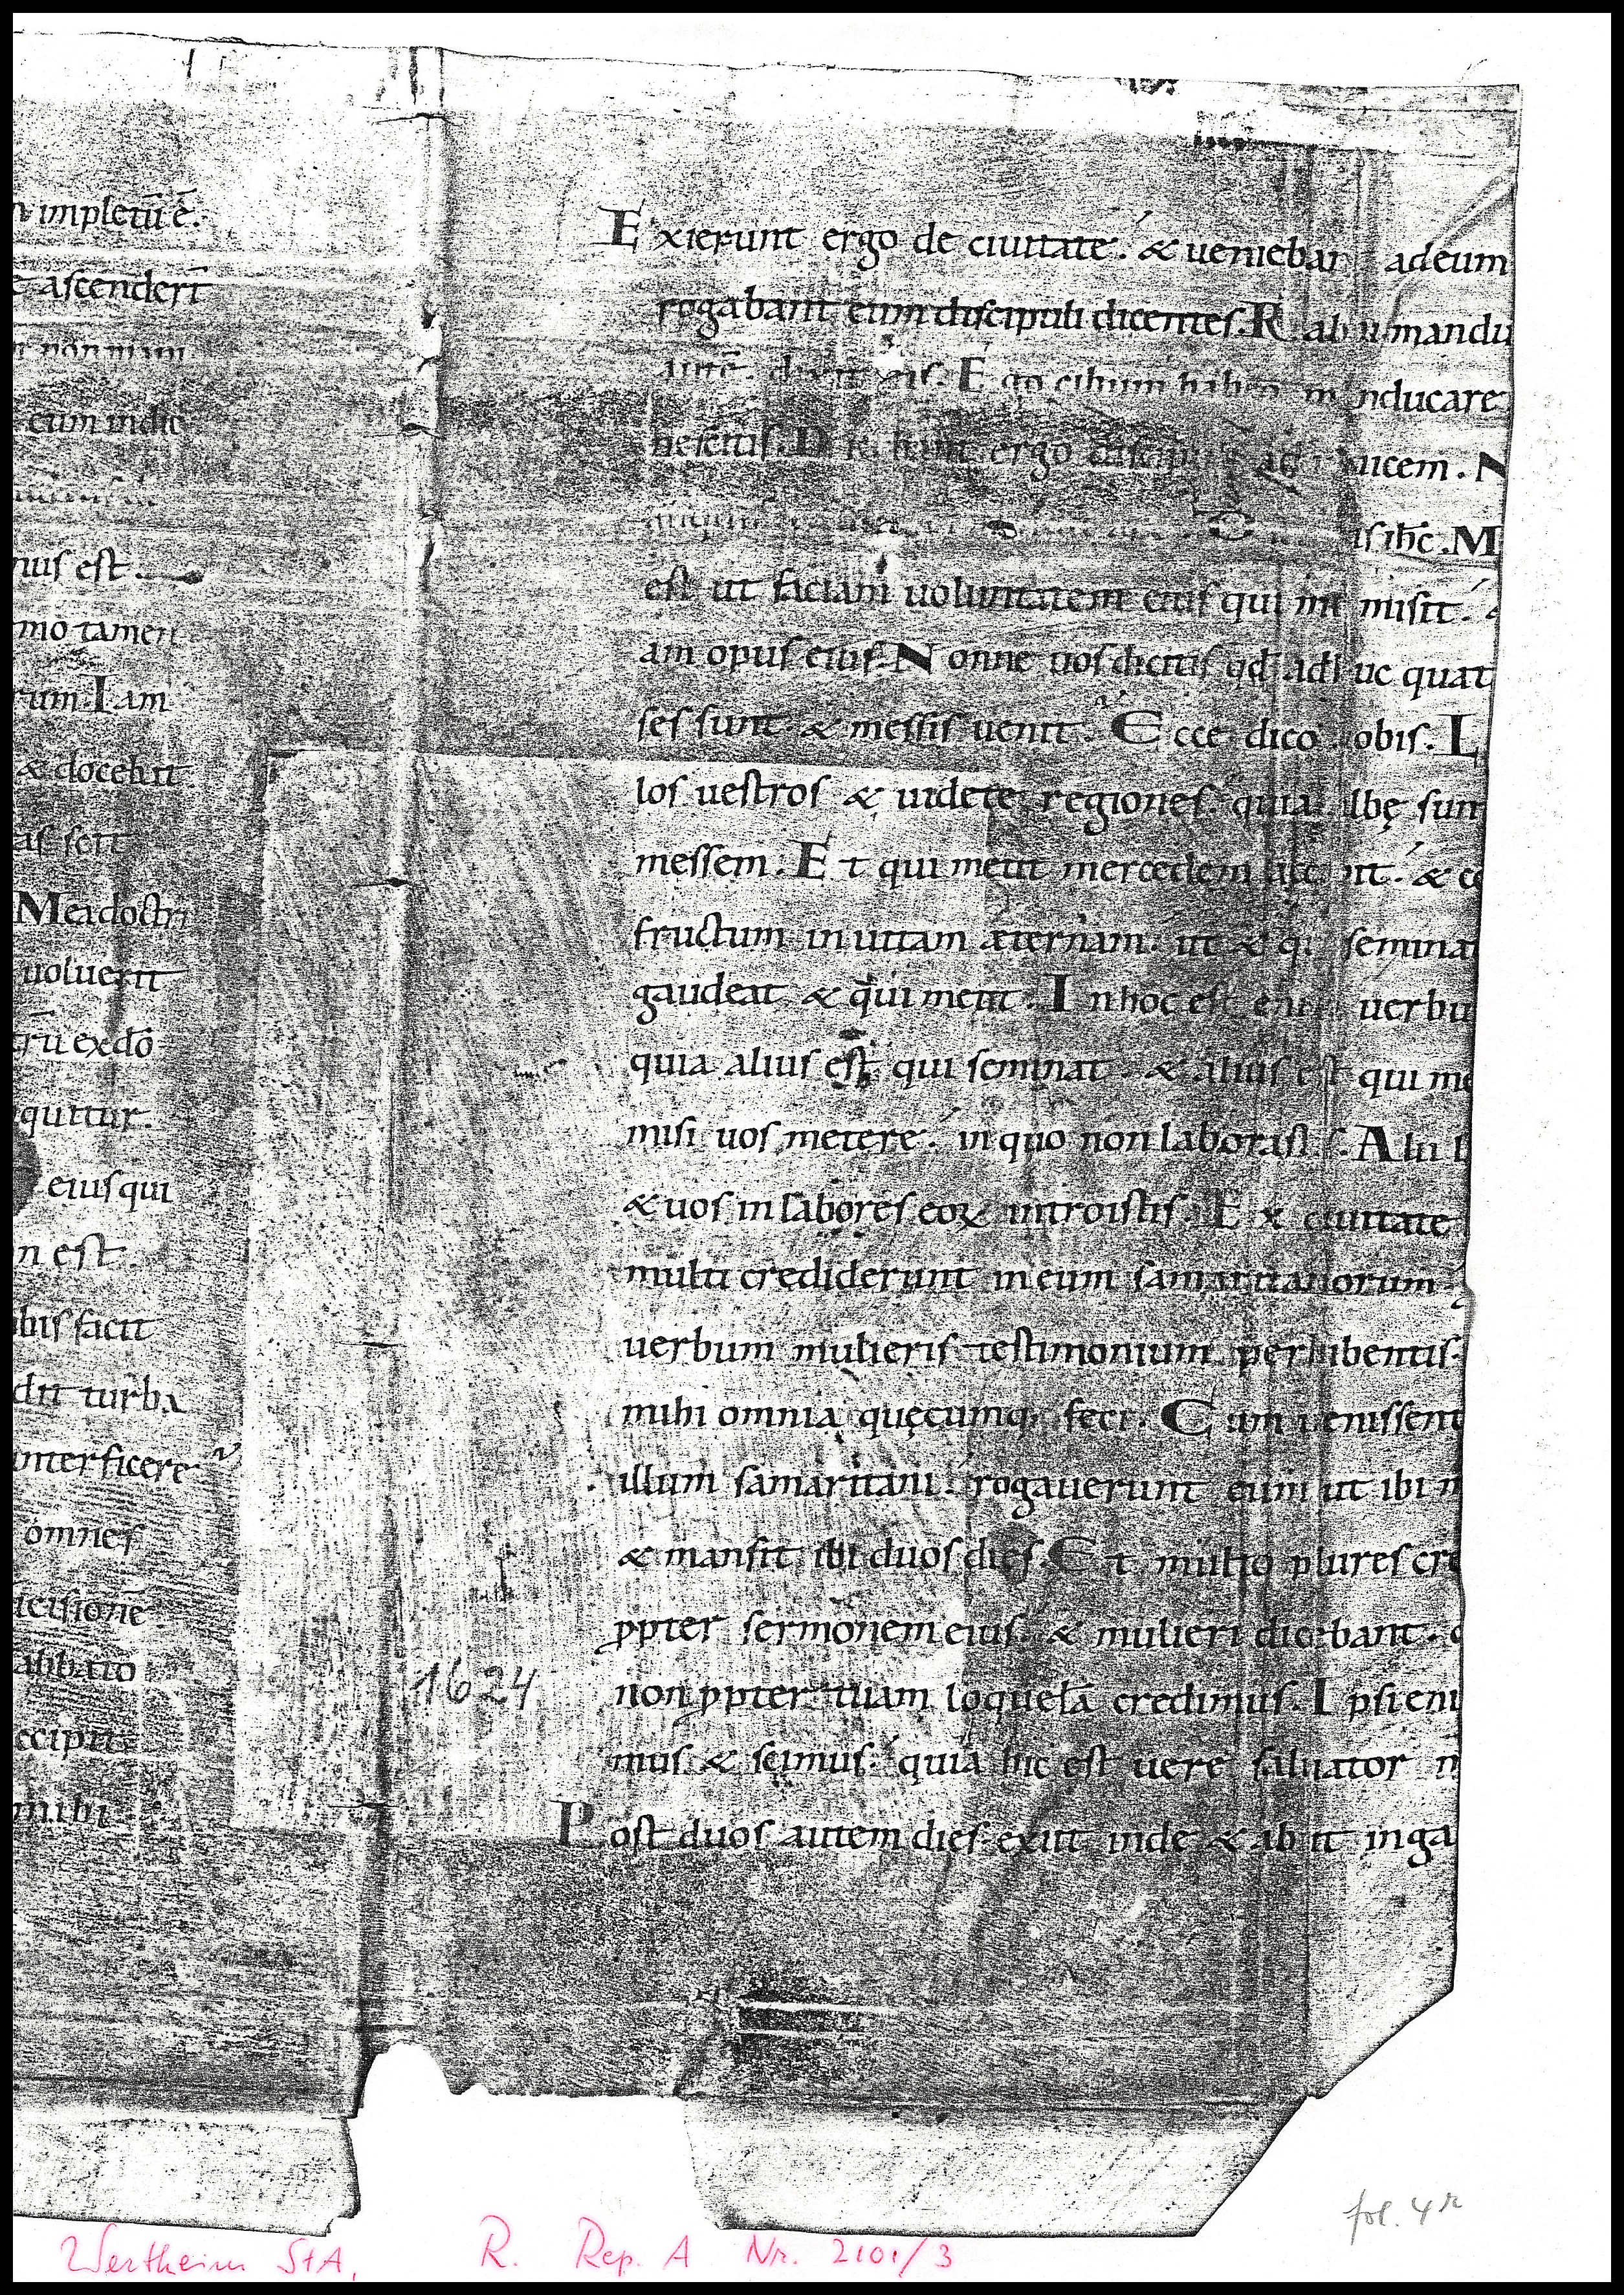 impletū ē.
ascenderī
non mani
cum indic
nus est.
mo tamen
rum. Iam
& docebat
as scit
Mea doctri
uoluerit
trū ex dō
quitur.
eius qui
n est.
bis facit
dit turba
interficere
omnes
cisionē
sabbato
ccipit
mihi
Exierunt ergo de ciuitate. & ueniebar ad eum
rogabant eum discipuli dicentes. Rab i mandu
autē. dixit eis. Ego cibum habeo m nducare
nescitis. D ergo discip ad uicem. N
is ihc. M
est ut faciam uoluntatem eius qui mi misit. &
am opus eius. Nonne uos dicitis qd adhuc quat
ses sunt & messis uenit. Ecce dico obis. L
los uestros & uidete regiones. quia lbę sun
messem. Et qui metit mercedem acc it. & co
fructum in uitam æternam. ut & q seminat
gaudeat & qui metit. In hoc est eni uerbu
quia alius est qui seminat. & alius est qui me
misi uos metere. in quo non laborast s. Alii l
& uos in labores eoꝝ introistis. Ex ciuitate
multi crediderunt in eum samaritanorum.
uerbum mulieris testimonium perhibentis.
mihi omnia quęcumq; feci. Cum uenissent
illum samaritani. rogauerunt eum ut ibi m
& mansit ibi duos dies. Et multo plures cre
ꝓpter sermonem eius. & mulieri dicebant.
non ꝓpter tuam loquelā credimus. Ipsi eni
mus & scimus. quia hic est uere saluator m
1624
Post duos autem dies exiit inde & abiit in ga
fol. 4r
Wertheim StA, R. Rep. A Nr. 2101/3